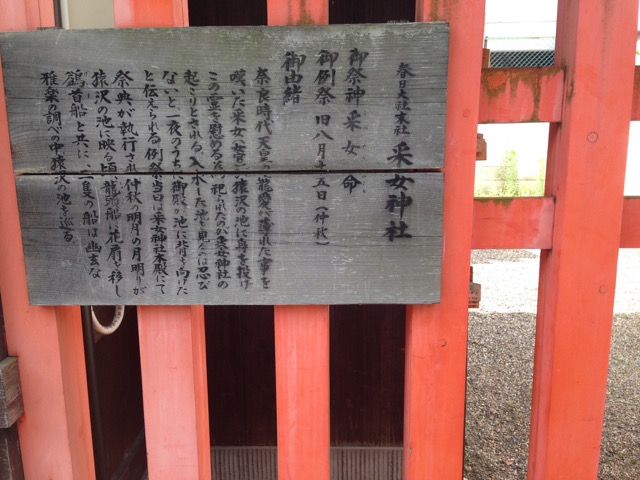 春日大社末社 采女神社
御祭神 采女命
御例祭 旧八月十五日(仲秋)
御由緒
奈良時代天皇の寵愛が薄れた事を
嘆いた采女(女官)が猿沢の池に身を投げ
この霊を慰める為、祀られたのが采女神社の
起こりとされる、入水した池を見るのは忍び
ないと一夜のうちに御殿が池に背を向けた
と伝えられる例祭当日は采女神社本殿にて
祭典が執行され仲秋の明月の月明りが
猿沢の池に映る頃龍頭船に花扇を移し
鷁首船と共に、二隻の船は幽玄な
雅楽の調べの中猿沢の池を巡る